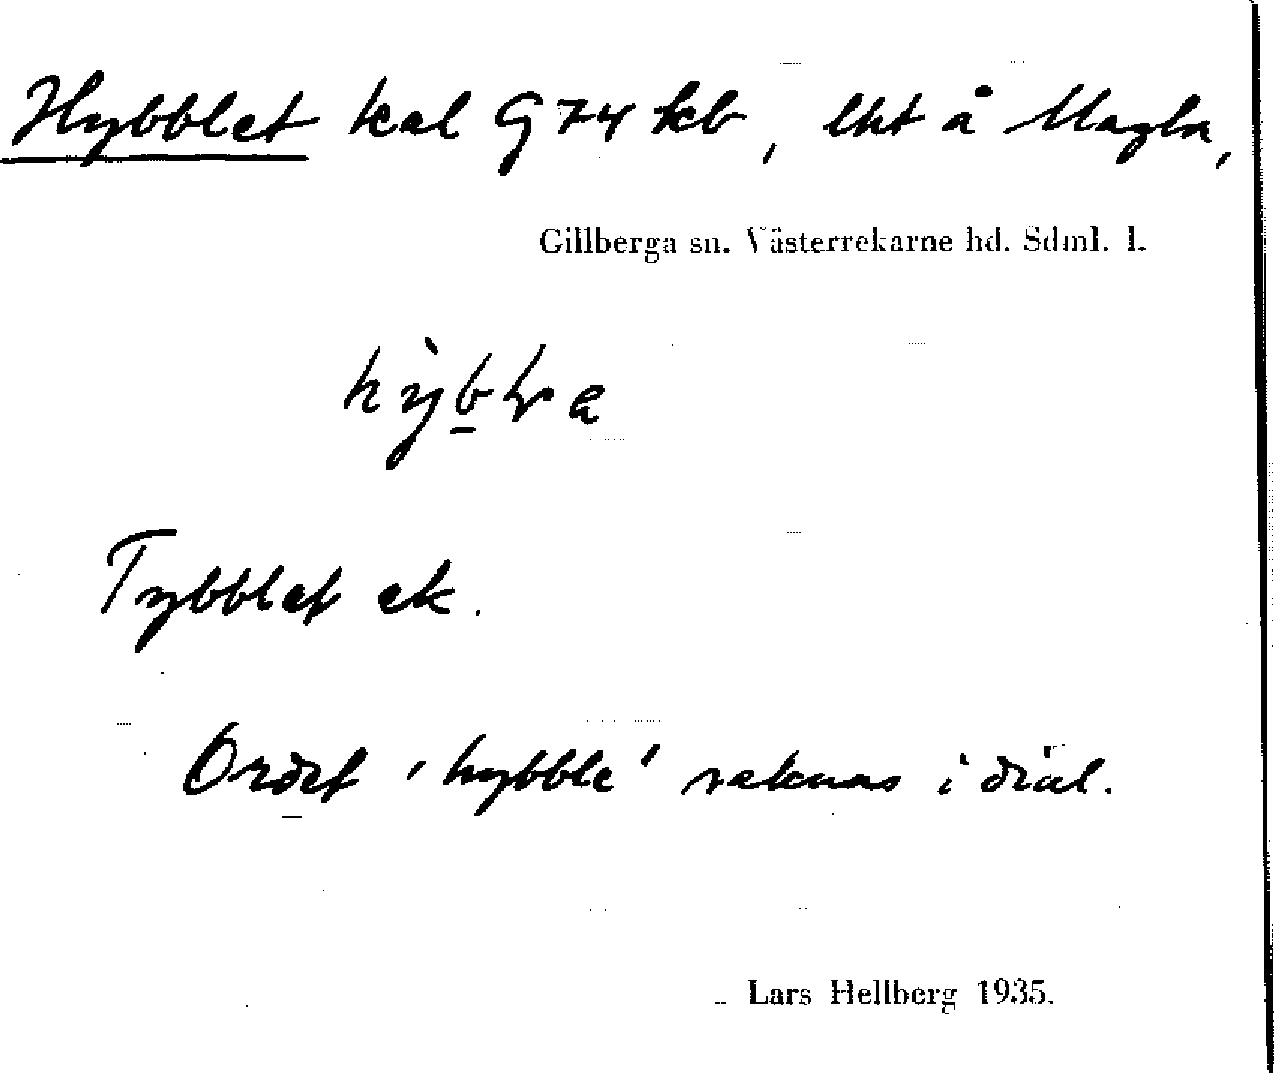 Hybblet kal G 74 kb, lht å Magla,
Gillberga sn. Västerrekarne hd. Sdml. l.
Tybblet ek.
Ordet 'hybble' saknas i dial.
Lars Hellberg 1935.